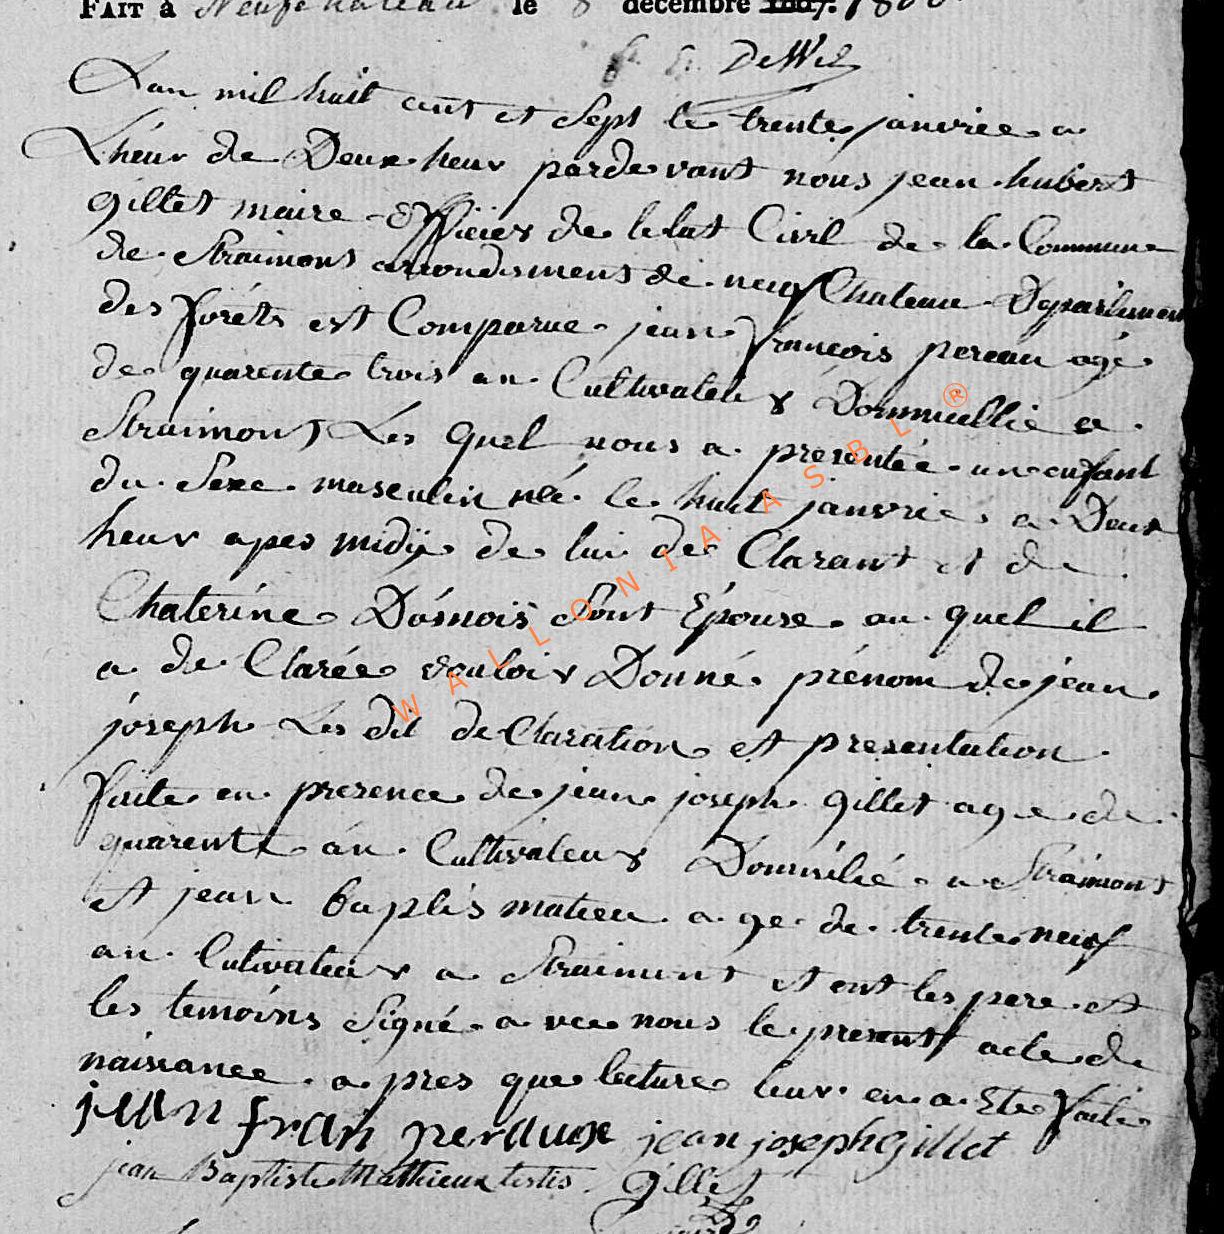 FAIT à Neufchateau le 8 décembre 1807. 1806.
DeWez
Lan mil huit cent et Sept le trente janvrier a
Lheur de Deux heur pardevant nous jean hubert
gillet maire officier de letat Civil de la Commune
de Straimont arrondisment de neufChateau Departement
des forêts est Comparue jean françois pereau agé
de quarente trois an Cultivateur Dommicillié a
Straimont Les quel nous a presentée un enfant
du Sexe masculin née le huit janvrier a Deux
heur apes midÿ de lui de Clarant et de
Chaterine Dómoiš Sont Épouse au quel il
a de Clarée vouloir Donné prénom de jean
joseph Les dit de Claration et presentation
faite en presence de jean joseph gillet age de
quarente án Cultivateur Domicilié a Straimont
et jean baptis matieu a ge de trente neuf
an Cutivateur a Straimont et ont les pere et
les temoins Signé a vec nous le present acte de
naissance a pres que lecture leur en a Ete faite
jean fran peraux jean joseph gillet
jean Baptiste Mathieux testis Gillet
maire
WALLONIA ASBL ®